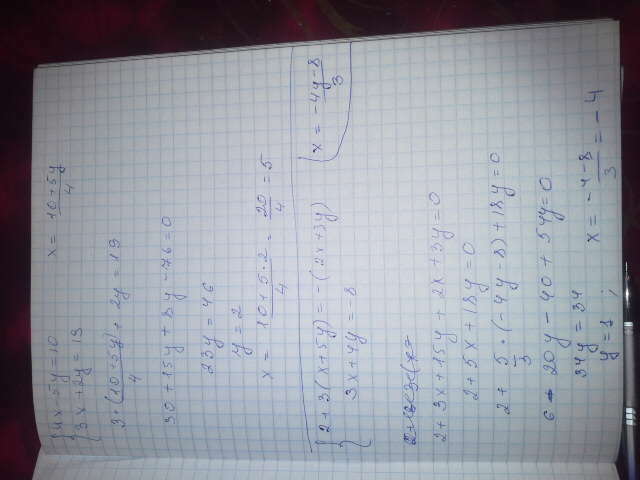 4x - 5y = 10
3x + 2y = 19
x = (10+5y)/4
3·(10+5y)/4 + 2y = 19
30 + 15y + 8y - 76 = 0
23y = 46
y = 2
x = (10+5·2)/4 = 20/4 = 5
2 + 3(x+5y) = -(2x+3y)
3x + 4y = -8
x = (-4y-8)/3
2 + 3x + 15y + 2x + 3y = 0
2 + 5x + 18y = 0
2 + 5/3·(-4y-8) + 18y = 0
6 - 20y - 40 + 54y = 0
34y = 34
y = 1 ; x = (-4-8)/3 = -4